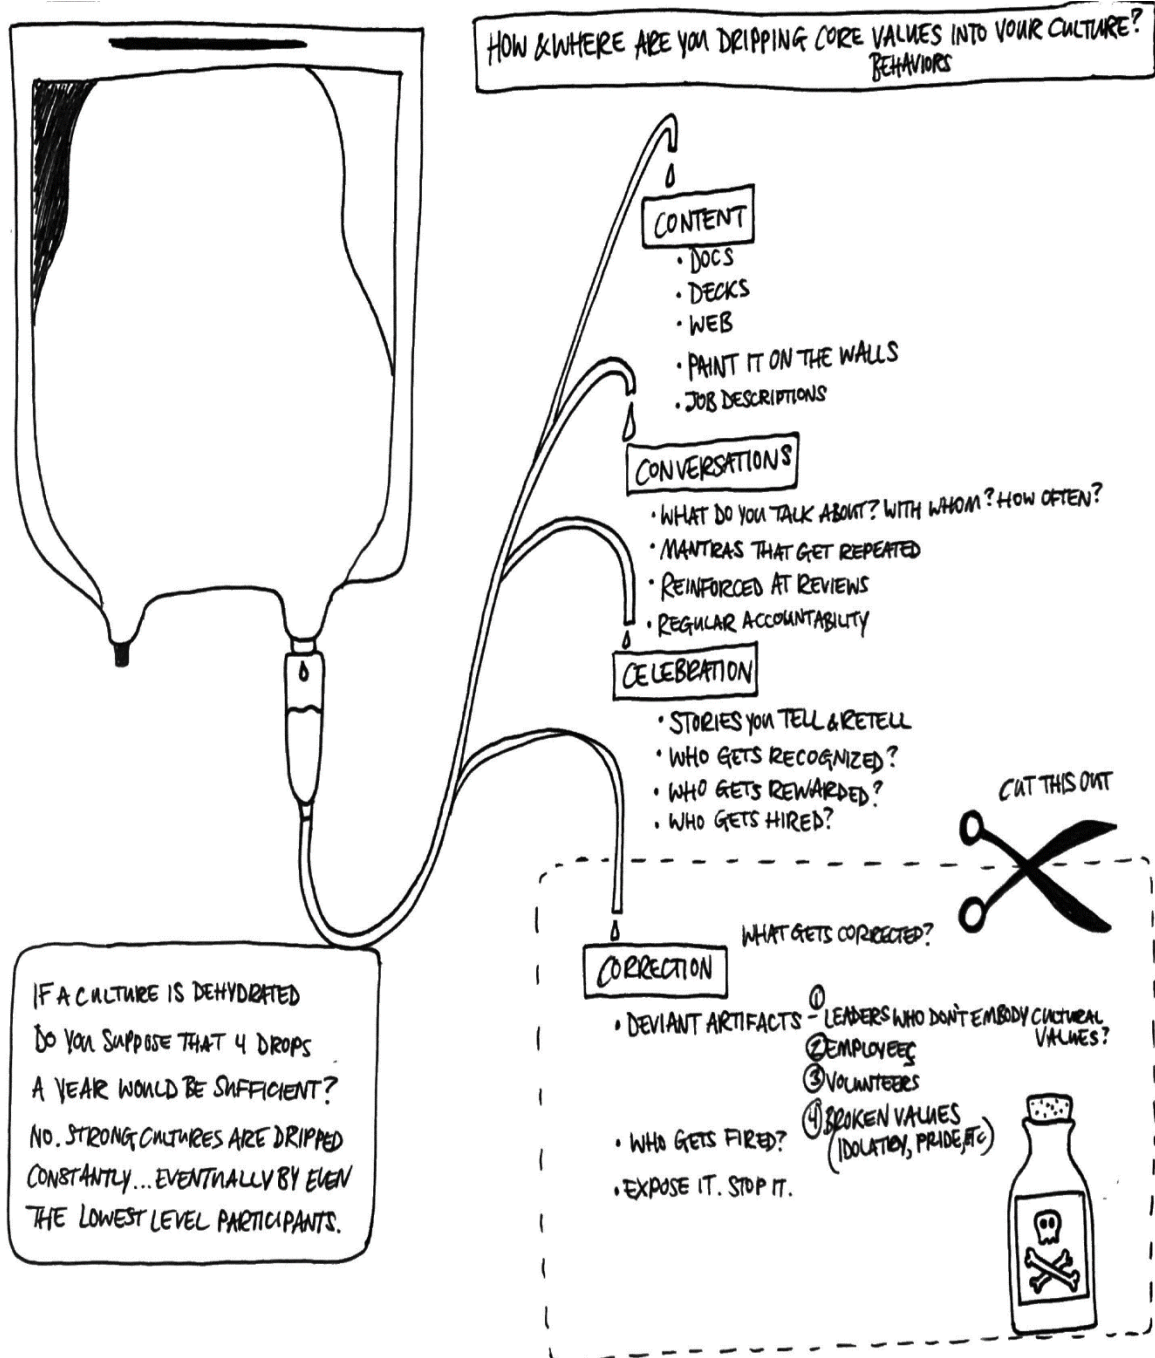 HOW & WHERE ARE YOU DRIPPING CORE VALUES INTO YOUR CULTURE?
BEHAVIORS
CONTENT
• DOCS
• DECKS
• WEB
• PAINT IT ON THE WALLS
• JOB DESCRIPTIONS
CONVERSATIONS
• WHAT DO YOU TALK ABOUT? WITH WHOM? HOW OFTEN?
• MANTRAS THAT GET REPEATED
• REINFORCED AT REVIEWS
• REGULAR ACCOUNTABILITY
CELEBRATION
• STORIES YOU TELL & RETELL
• WHO GETS RECOGNIZED?
• WHO GETS REWARDED?
• WHO GETS HIRED?
CUT THIS OUT
WHAT GETS CORRECTED?
CORRECTION
• DEVIANT ARTIFACTS – ① LEADERS WHO DON'T EMBODY CULTURAL
VALUES?
② EMPLOYEES
③ VOLUNTEERS
④ BROKEN VALUES
(IDOLATRY, PRIDE, ETC)
• WHO GETS FIRED?
• EXPOSE IT. STOP IT.
IF A CULTURE IS DEHYDRATED
DO YOU SUPPOSE THAT 4 DROPS
A YEAR WOULD BE SUFFICIENT?
NO. STRONG CULTURES ARE DRIPPED
CONSTANTLY... EVENTUALLY BY EVEN
THE LOWEST LEVEL PARTICIPANTS.